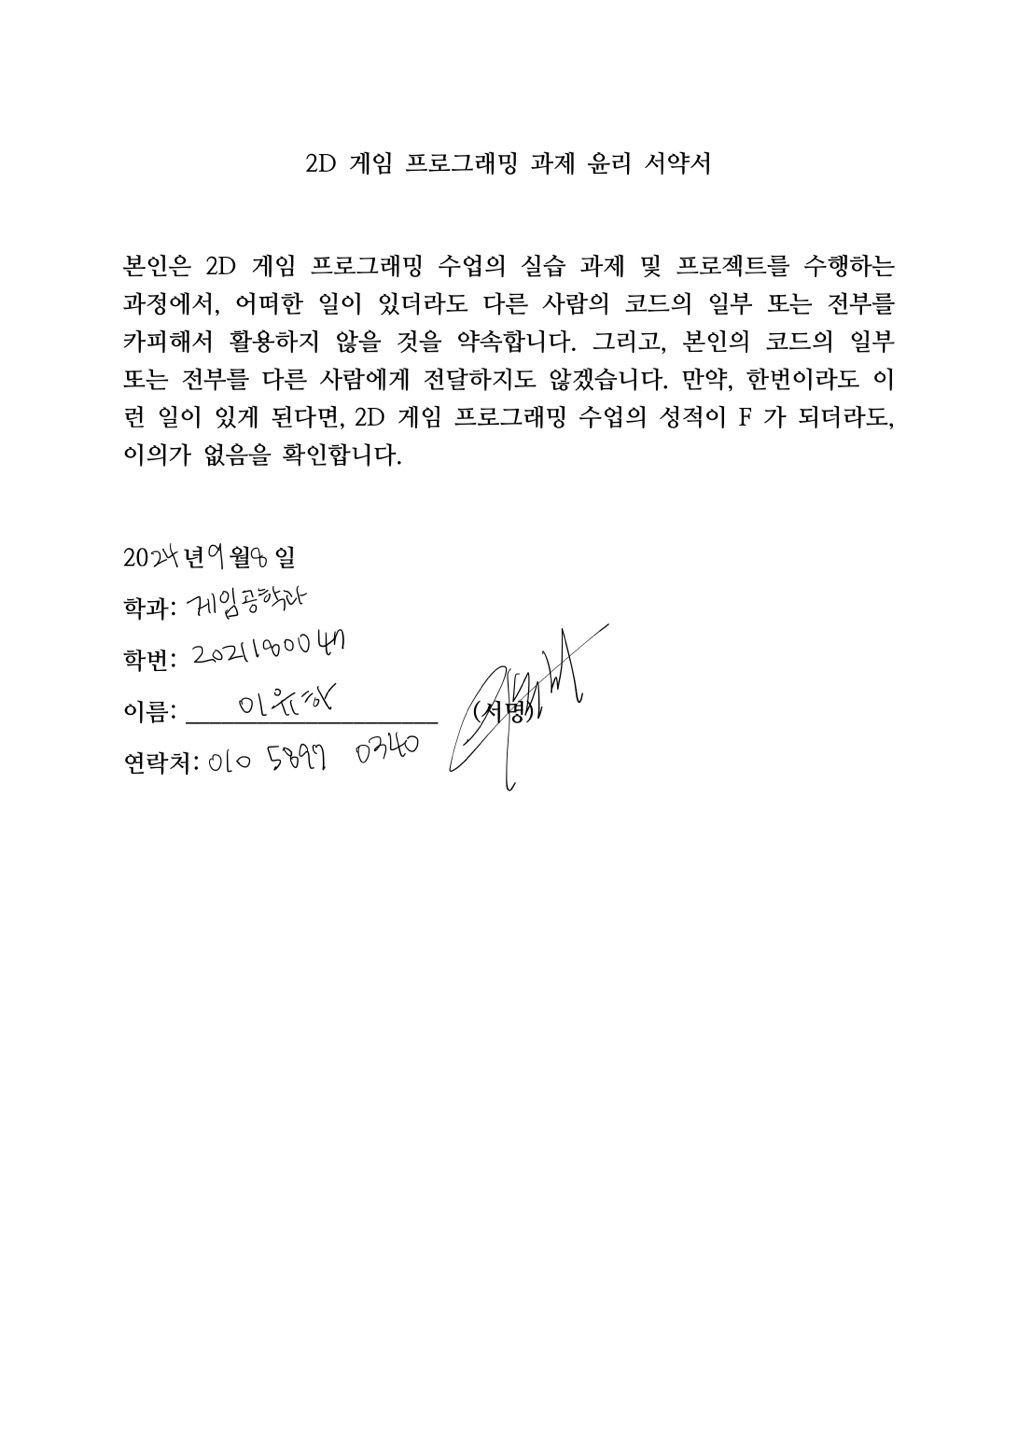 2D 게임 프로그래밍 과제 윤리 서약서
본인은 2D 게임 프로그래밍 수업의 실습 과제 및 프로젝트를 수행하는
과정에서, 어떠한 일이 있더라도 다른 사람의 코드의 일부 또는 전부를
카피해서 활용하지 않을 것을 약속합니다. 그리고, 본인의 코드의 일부
또는 전부를 다른 사람에게 전달하지도 않겠습니다. 만약, 한번이라도 이
런 일이 있게 된다면, 2D 게임 프로그래밍 수업의 성적이 F 가 되더라도,
이의가 없음을 확인합니다.
2024년 9월 8일
학과: 게임공학과
학번: 2021180047
이름: 이유하 (서명)
연락처: 010 5897 0340